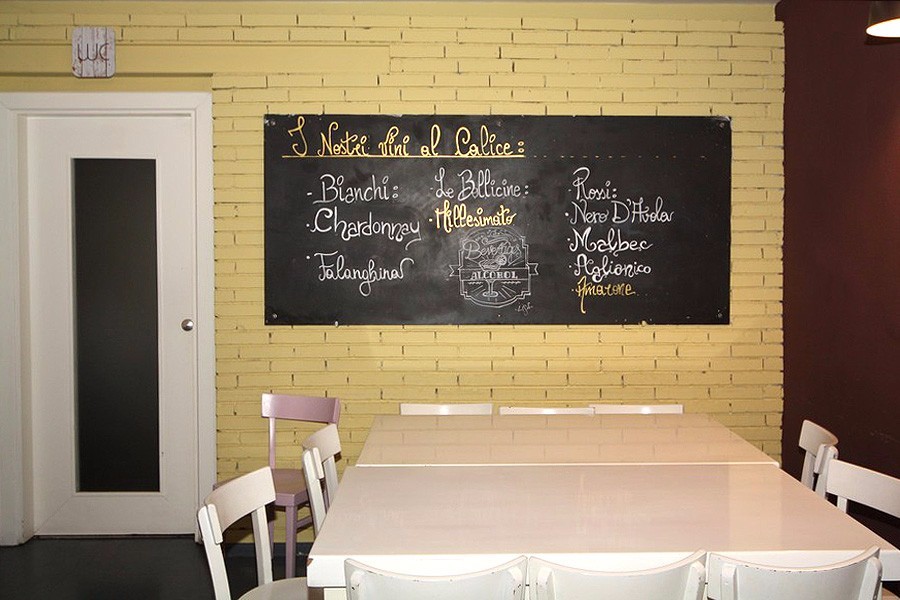 WC
I Nostri Vini al Calice:
- Bianchi:
· Chardonnay
· Falanghina
· Le Bollicine:
· Millesimato
Beverages
ALCOHOL
Rossi:
· Nero D'Avola
· Malbec
· Aglianico
· Amarone